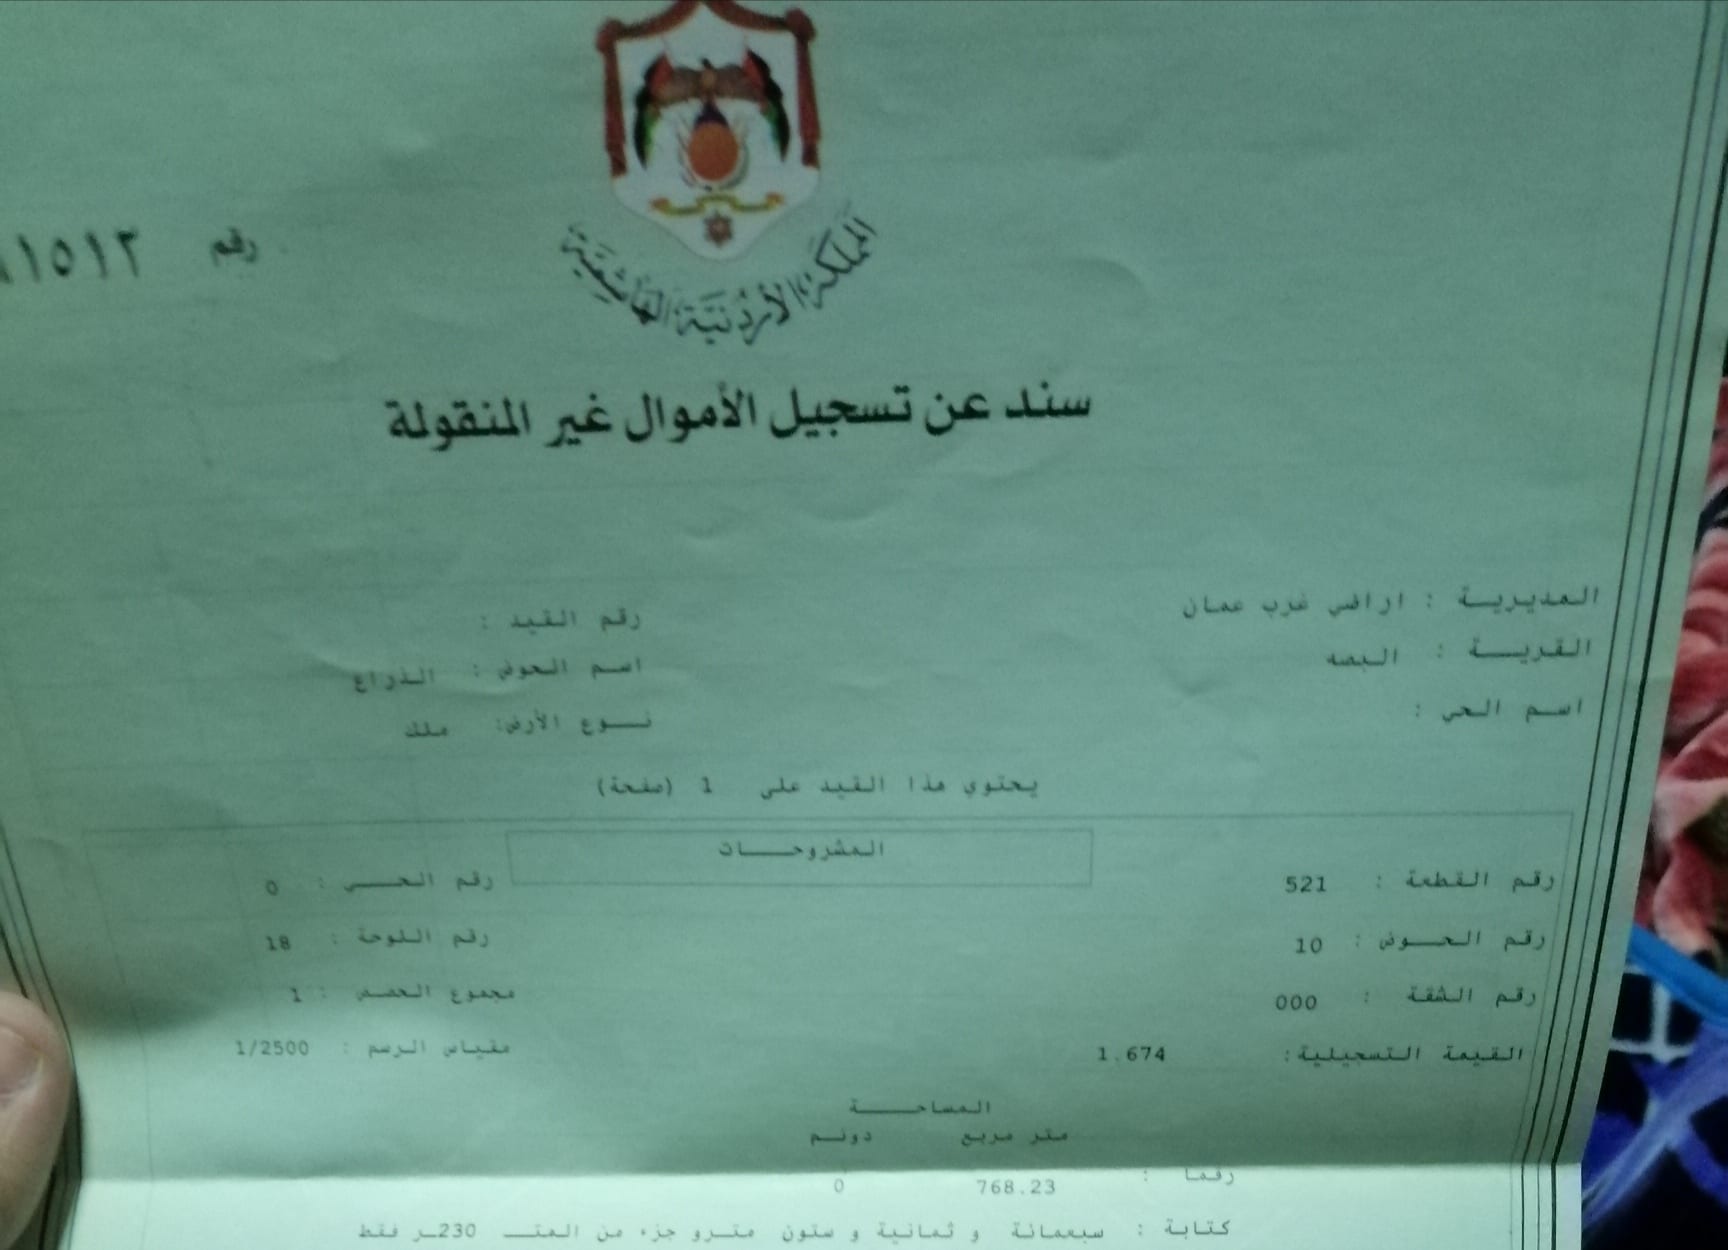 المملكة الأردنية الهاشمية
رقم ١٥١٢
سند عن تسجيل الأموال غير المنقولة
المديرية : اراضي غرب عمان رقم القيد :
القرية : البصه اسم الحوض : الذراع
اسم الحي : نوع الأرض: ملك
يحتوي هذا القيد على 1 (صفحة)
المشروحات
رقم القطعة : 521 رقم الحي : 0
رقم الحوض : 10 رقم اللوحة : 18
رقم الشقة : 000 مجموع الحصص : 1
القيمة التسجيلية: 1.674 مقياس الرسم : 1/2500
المساحة
متر مربع دونم
رقما : 768.23 0
كتابة : سبعمائة و ثمانية و ستون مترو جزء من المتـ 230ـر فقط